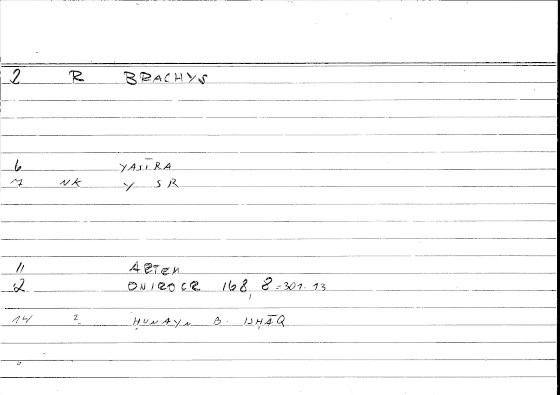 2 R BRACHYS
6 YASĪRA
7 NK Y SR
11 ARTEM
2 ONIROCR 168, 8 = 301. 13
14 2 ḤUNAYN B. ISḤĀQ